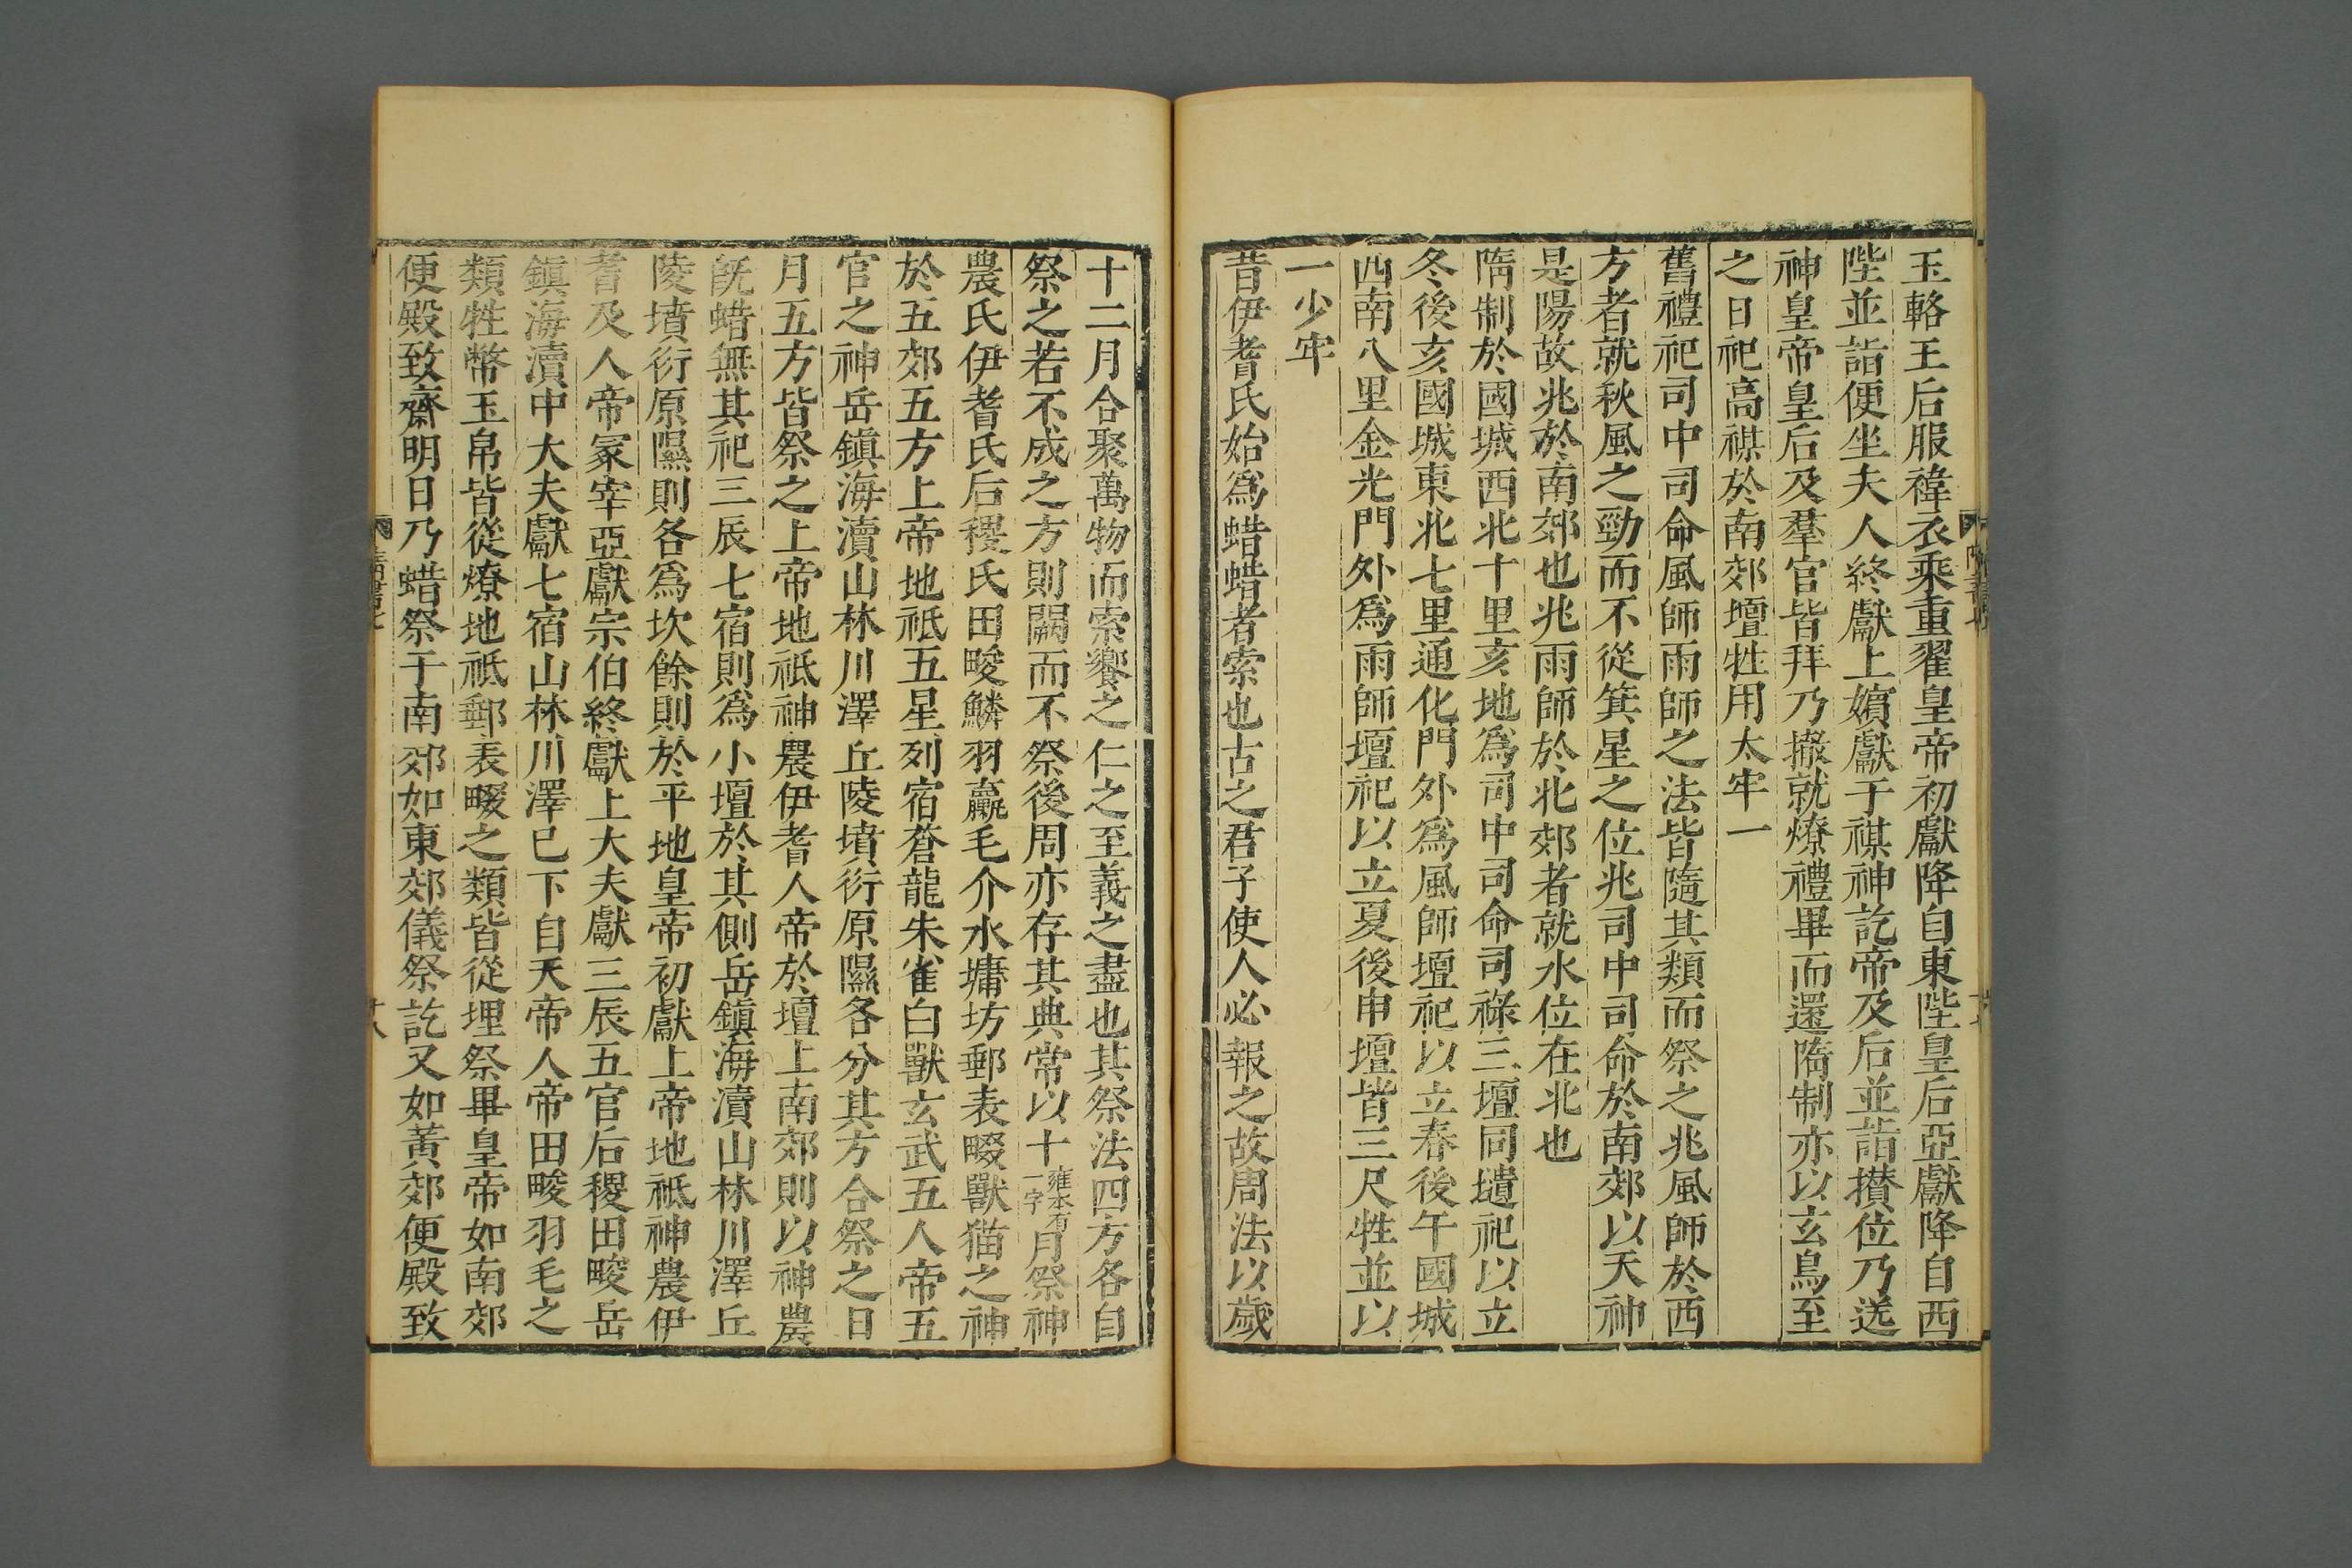 玉輅王后服褘衣乘重翟皇帝初獻降自東陛皇后亞獻降自西
陛並詣便坐夫人終獻上嬪獻于禖神訖帝及后並詣攢位乃送
神皇帝皇后及羣官皆拜乃撤就燎禮畢而還隋制亦以玄鳥至
之日祀高禖於南郊壇牲用太牢一
舊禮祀司中司命風師雨師之法皆隨其類而祭之兆風師於西
方者就秋風之勁而不從箕星之位兆司中司命於南郊以天神
是陽故兆於南郊也兆雨師於北郊者就水位在北也
隋制於國城西北十里亥地爲司中司命司祿三壇同壝祀以立
冬後亥國城東北七里通化門外爲風師壇祀以立春後午國城
西南八里金光門外爲雨師壇祀以立夏後申壇皆三尺牲並以
一少牢
昔伊耆氏始爲蜡蜡者索也古之君子使人必報之故周法以歲
十二月合聚萬物而索饗之仁之至義之盡也其祭法四方各自
祭之若不成之方則闕而不祭後周亦存其典常以十雍本有一字月祭神
農氏伊耆氏后稷氏田畯鱗羽臝毛介水墉坊郵表畷獸猫之神
於五郊五方上帝地祇五星列宿蒼龍朱雀白獸玄武五人帝五
官之神岳鎮海瀆山林川澤丘陵墳衍原隰各分其方合祭之日
月五方皆祭之上帝地祇神農伊耆人帝於壇上南郊則以神農
旣蜡無其祀三辰七宿則爲小壇於其側岳鎮海瀆山林川澤丘
陵墳衍原隰則各爲坎餘則於平地皇帝初獻上帝地祇神農伊
耆及人帝冢宰亞獻宗伯終獻上大夫獻三辰五官后稷田畯岳
鎮海瀆中大夫獻七宿山林川澤已下自天帝人帝田畯羽毛之
類牲幣玉帛皆從燎地祇郵表畷之類皆從埋祭畢皇帝如南郊
便殿致齋明日乃蜡祭于南郊如東郊儀祭訖又如黃郊便殿致